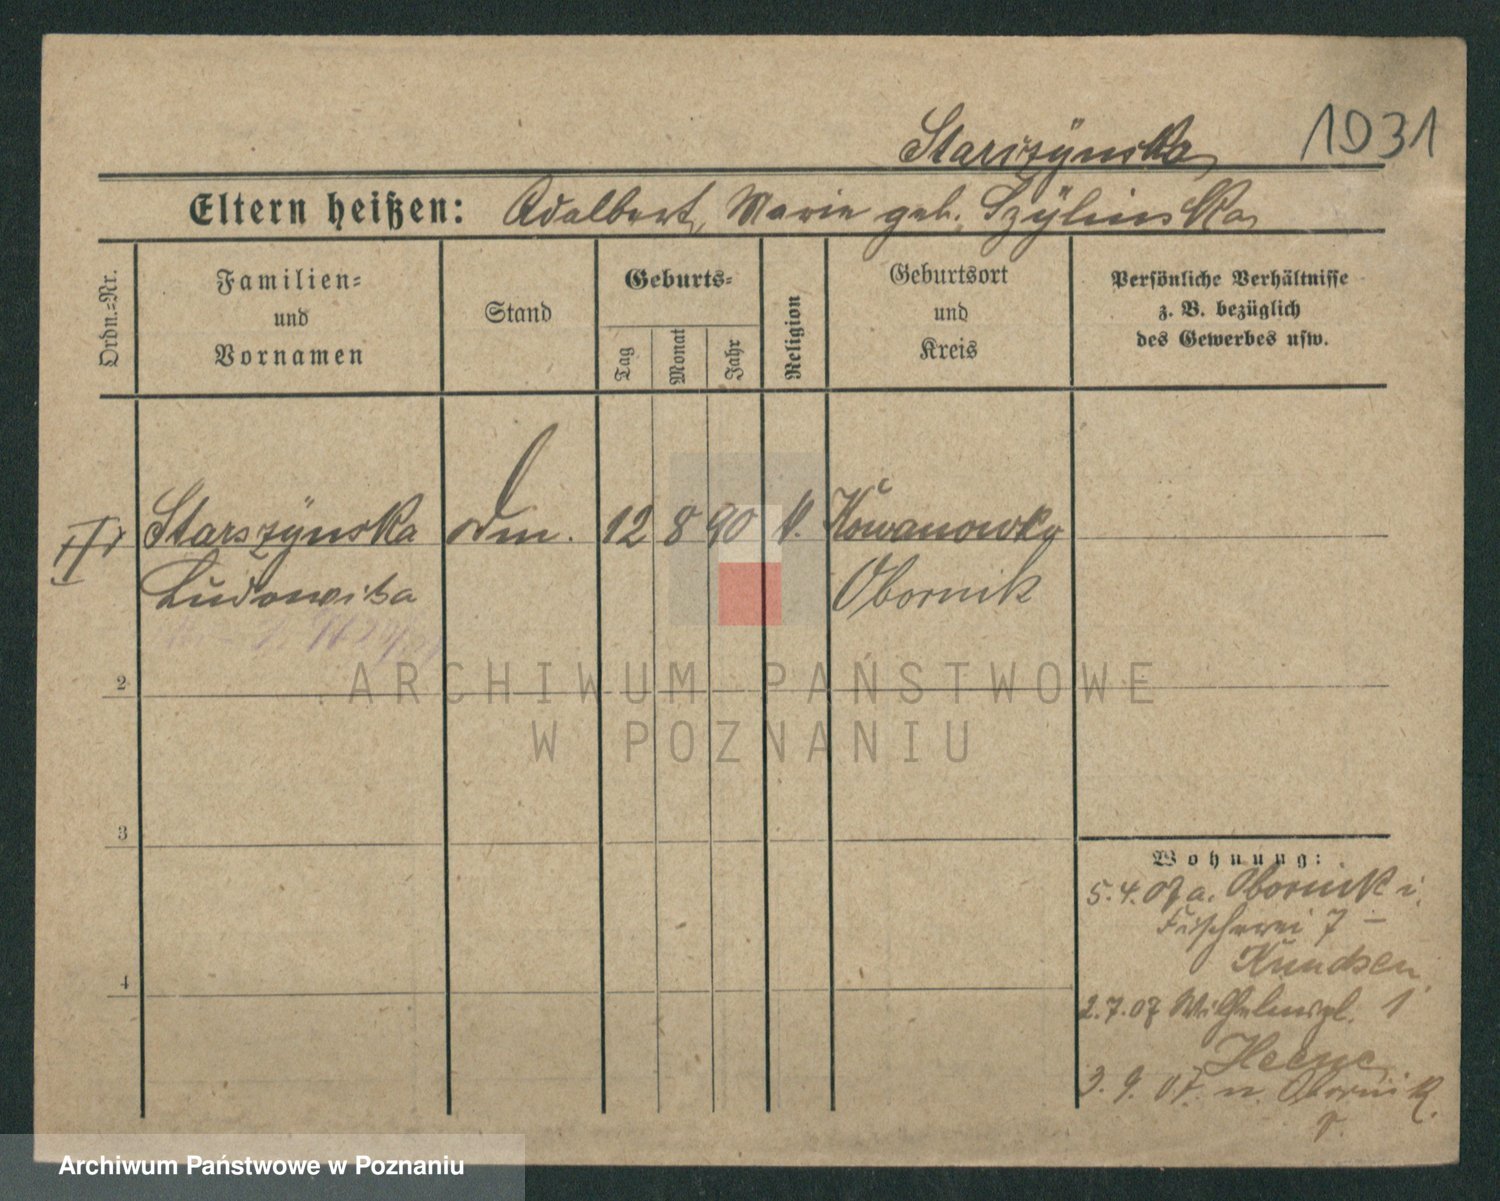 Starszÿnska 1931
Eltern heißen: Adalbert, Marie geb. Szÿlinska
Ordn.=Nr.
Familien=
und
Vornamen
Stand
Geburts=
Tag
Monat
Jahr
Religion
Geburtsort
und
Kreis
Persönliche Verhältnisse
z. B. bezüglich
des Gewerbes usw.
Starszÿnska 12 8 90 k. Kowanowko
Ludowika Obornik
2
3
4
ARCHIWUM PAŃSTWOWE
W POZNANIU
Wohnung:
5.4.07 a. Obornik i.
Fischerei 7 –
Knudsen
2.7.07 Wilhelmspl. 1
Heene
3.9.07. n. Obornik.
Archiwum Państwowe w Poznaniu